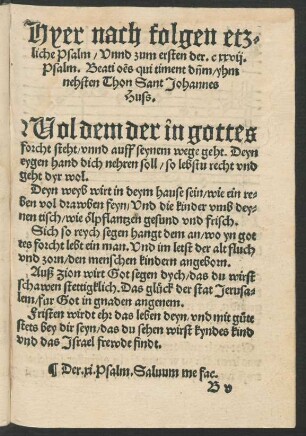 Hyer nach folgen etz⸗
liche Psalm / Unnd zum ersten der. cxxvij.
Psalm. Beati oēs qui timent dn̄m / yhm
nehsten Thon Sant Johannes
Huss.
Wol dem der in gottes
forcht steht / vnnd auff seynem wege geht. Deyn
eygen hand dich nehren soll / so lebstu recht vnd
geht dyr wol.
Deyn weyb wirt in deym hause sein / wie ein re⸗
ben vol drawben feyn / Und die kinder vmb dey⸗
nen tisch / wie ölpflantzen gesund vnd frisch.
Sich so reych segen hangt dem an / wo yn got
tes forcht lebt ein man. Und im letst der alt fluch
vnd zorn / den menschen kindern angeborn.
Auß Zion wirt Got segen dych / das du wirst
schawen stettigklich. Das glück der stat Jerusa⸗
lem / far Got in gnaden angenem.
Fristen wirdt ehr das leben deyn. vnd mit güte
stets bey dir seyn / das du sehen wirst kyndes kind
vnd das Israel frewde findt.
¶ Der. xi. Psalm. Saluum me fac.
B v